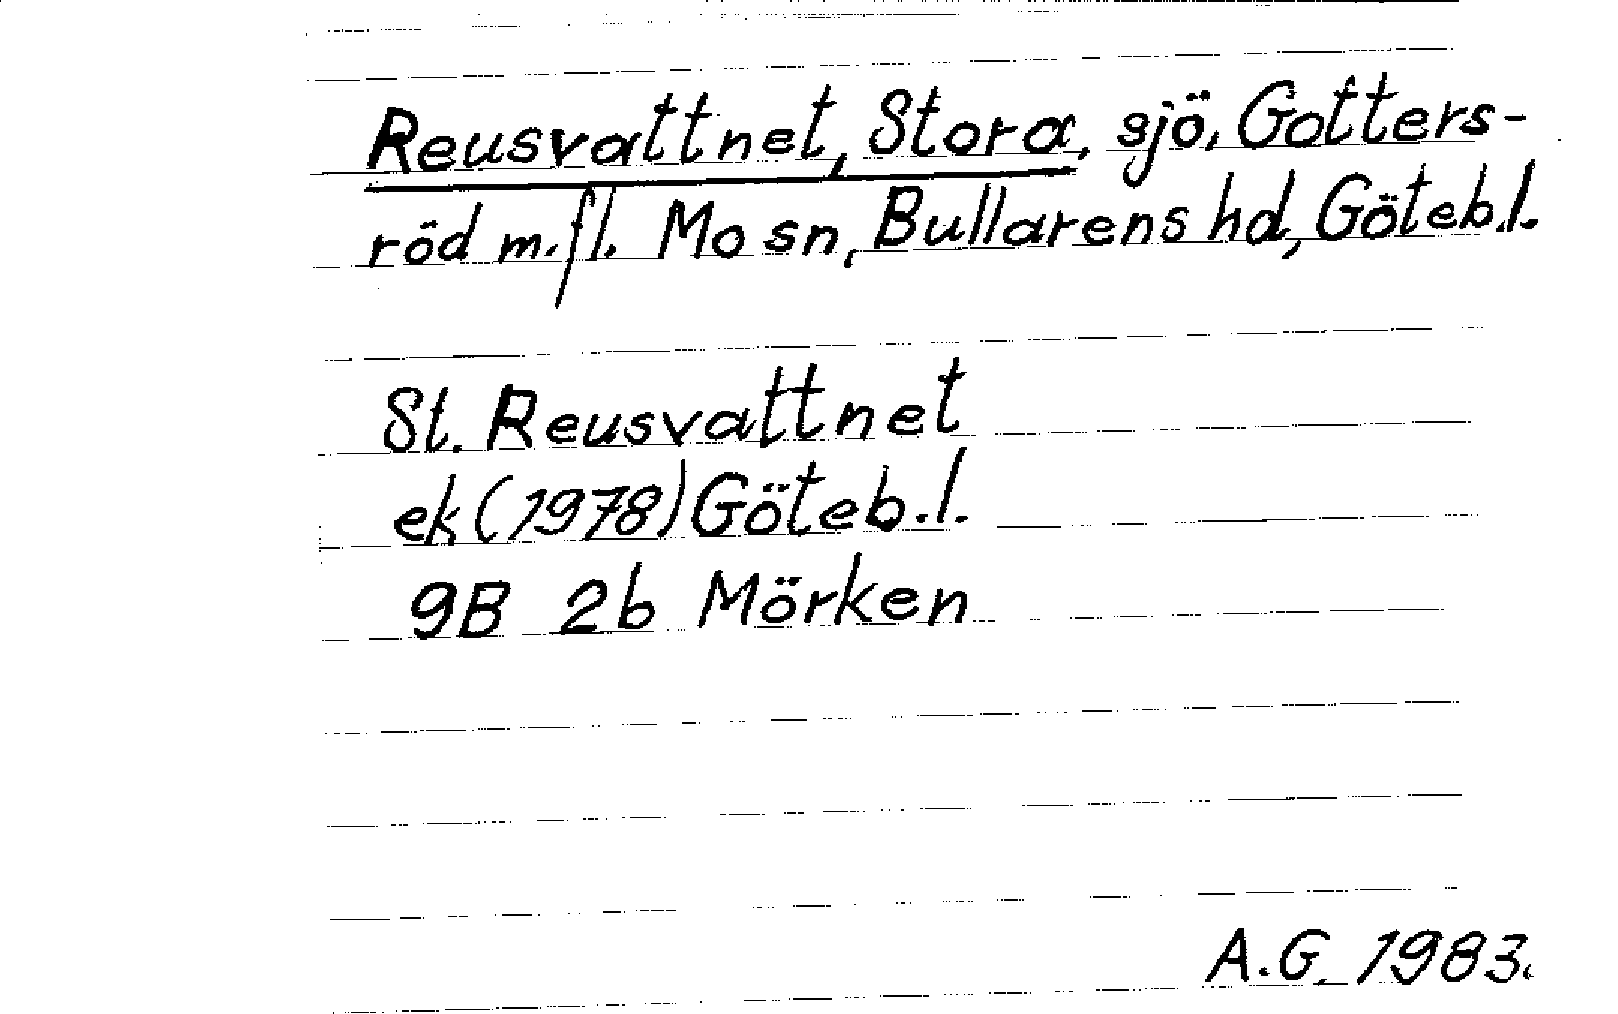 Reusvattnet, Stora, sjö, Gotters-
röd m.fl. Mo sn, Bullarens hd, Göteb.l.
St. Reusvattnet
ek (1978) Göteb.l.
9B 2b Mörken
A.G. 1983.